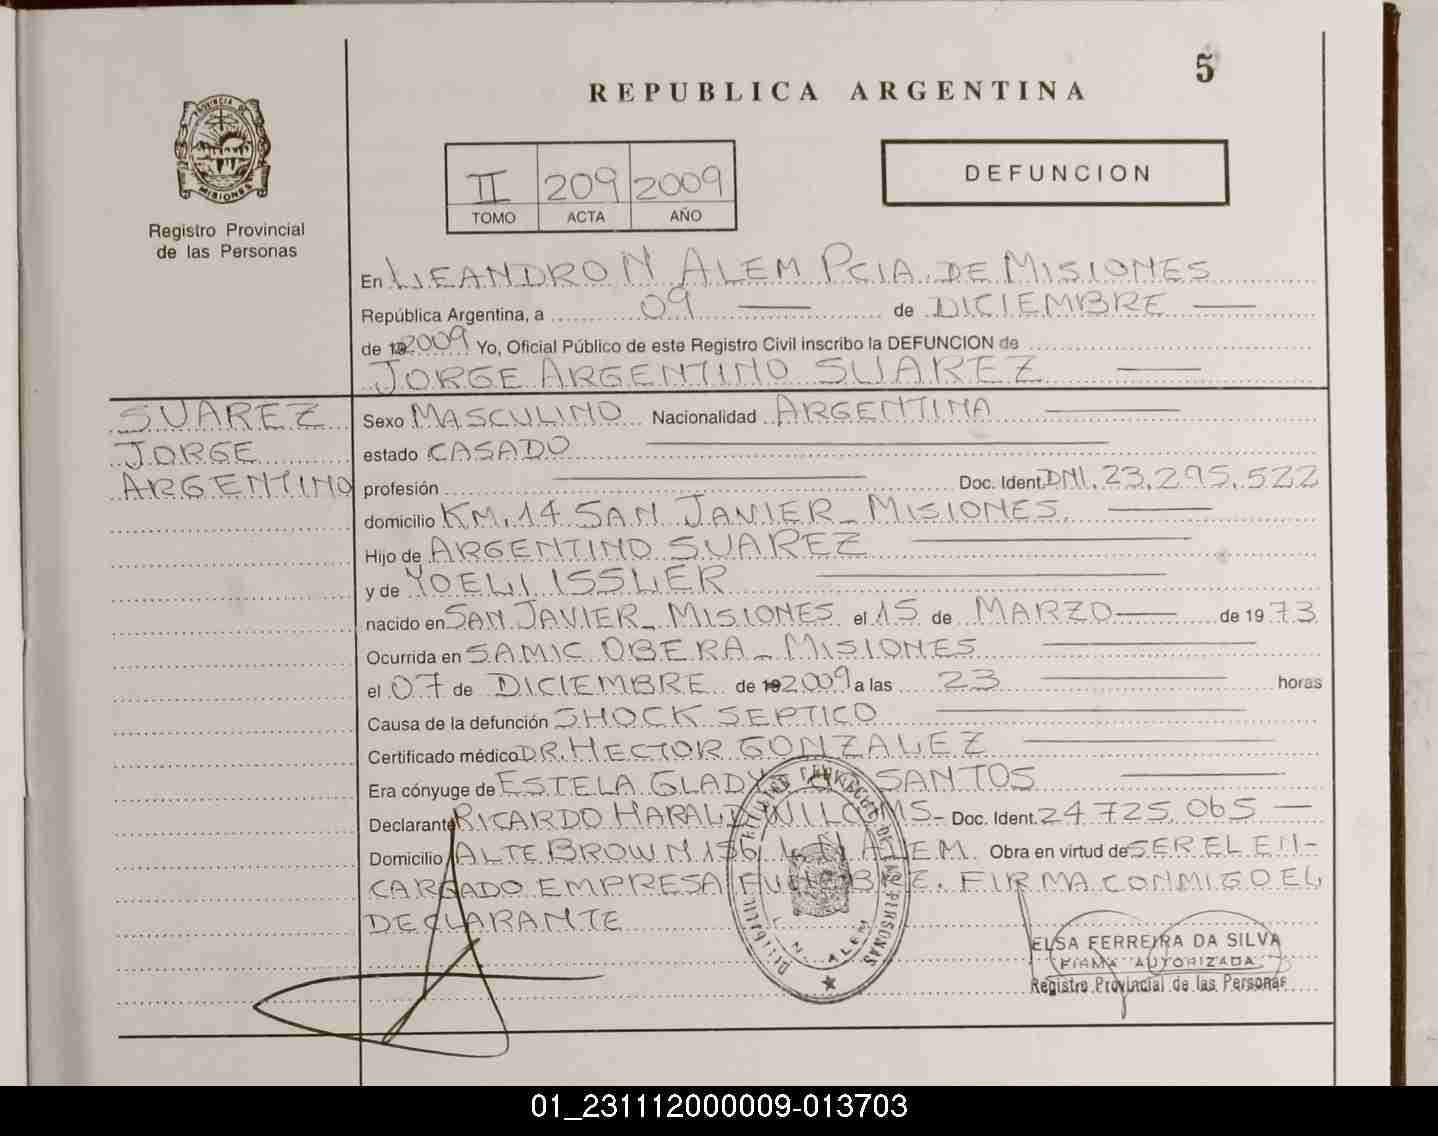 5
REPUBLICA ARGENTINA
PROVINCIA DE
MISIONES
Registro Provincial
de las Personas
II 209 2009
TOMO ACTA AÑO
DEFUNCION
En LEANDRO N ALEM PCIA. DE MISIONES
República Argentina, a 09 de DICIEMBRE
de 2009 Yo, Oficial Público de este Registro Civil inscribo la DEFUNCION de
JORGE ARGENTINO SUAREZ
SUAREZ
JORGE
ARGENTINO
Sexo MASCULINO Nacionalidad ARGENTINA
estado CASADO
profesión Doc. Ident. DNI. 23.295.522
domicilio KM. 14 SAN JAVIER - MISIONES.
Hijo de ARGENTINO SUAREZ
y de YOELI ISSLER
nacido en SAN JAVIER - MISIONES el 15 de MARZO de 1973
Ocurrida en SAMIC OBERA - MISIONES
el 07 de DICIEMBRE de 2009 a las 23 horas
Causa de la defunción SHOCK SEPTICO
Certificado médico DR. HECTOR GONZALEZ
Era cónyuge de ESTELA GLADY SANTOS
Declarante RICARDO HARALD Doc. Ident. 24 725.065
Domicilio ALTE BROWN 156 L N ALEM. Obra en virtud de SER EL EN-
CARGADO EMPRESA FUNEBRE. FIRMA CONMIGO EL
DECLARANTE
PERSONAS
N. ALEM
ELSA FERREIRA DA SILVA
FIRMA AUTORIZADA
Registro Provincial de las Personas
01_231112000009-013703